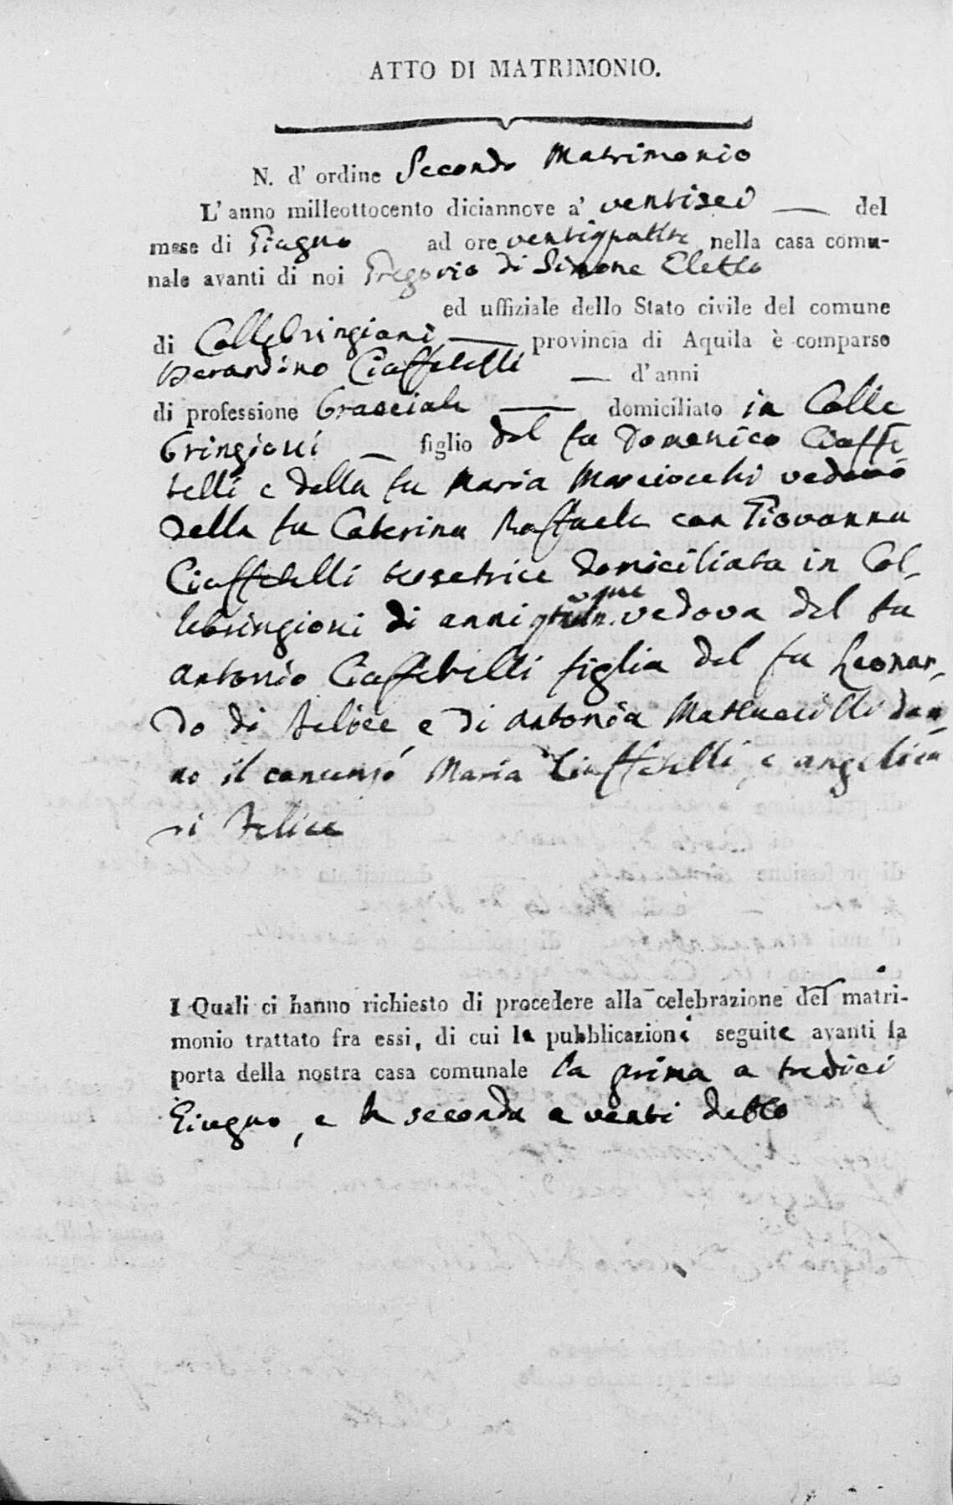 ATTO DI MATRIMONIO.
N. d' ordine Secondo Matrimonio
L' anno milleottocento diciannove a' ventisei del
mese di Giugno ad ore ventiquattro nella casa comu-
nale avanti di noi Gregorio di Simone Eletto
ed uffiziale dello Stato civile del comune
di Collebringioni provincia di Aquila è comparso
Berardino Ciaffetelli d' anni
di professione Bracciale domiciliato in Colle
Bringioni figlio del fu Domenico Ciaffe
telli e della fu Maria Marciocchi vedovo
della fu Caterina Raffaele con Giovanna
Ciaffetelli tessetrice domiciliata in Col-
lebringioni di anni vedova del fu
Antonio Ciaffetelli figlia del fu Leonar-
do di Felice, e di Antonia Mattuccilli dan-
no il consenso Maria Ciaffetelli, e Angelica
di Felice
I Quali ci hanno richiesto di procedere alla celebrazione del matri-
monio trattato fra essi, di cui le pubblicazioni seguite avanti la
porta della nostra casa comunale la prima a tredici
Giugno, e la seconda a venti detto